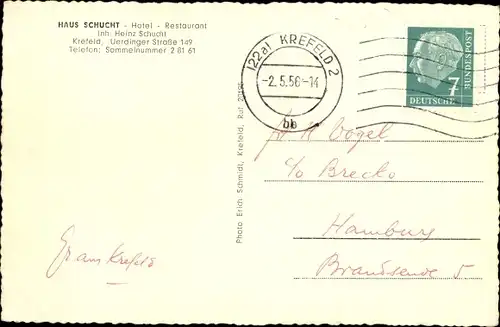 HAUS SCHUCHT - Hotel - Restaurant
Inh. Heinz Schucht
Krefeld, Uerdinger Straße 149
Telefon: Sammelnummer 2 81 61
(22a) KREFELD 2
-2.5.56-14
bb
7
DEUTSCHE
BUNDESPOST
Photo Erich Schmidt, Krefeld, Ruf
H Vogel
c/o Brecko
Hamburg
Brandsende 5.
Krefeld